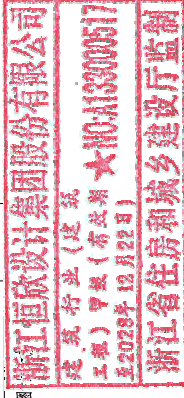 浙江恒欣设计集团股份有限公司
建筑行业（建筑
工程）甲级（有效期
至2028年 12月22日）
★NO:A133000517
浙江省住房和城乡建设厅监制